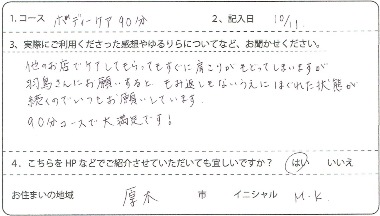 1. コース ボディーケア90分 2、記入日 10/11
3、実際にご利用くださった感想やゆるりらについてなど、お聞かせください。
他のお店でケアしてもらってもすぐに肩こりがもどってしまいますが
羽鳥さんにお願いすると、もみ返しもないうえにほぐれた状態が
続くのでいつもお願いしています。
90分コースで大満足です!
4．こちらをHPなどでご紹介させていただいても宜しいですか？ はい いいえ
お住まいの地域 厚木 市 イニシャル M.K.